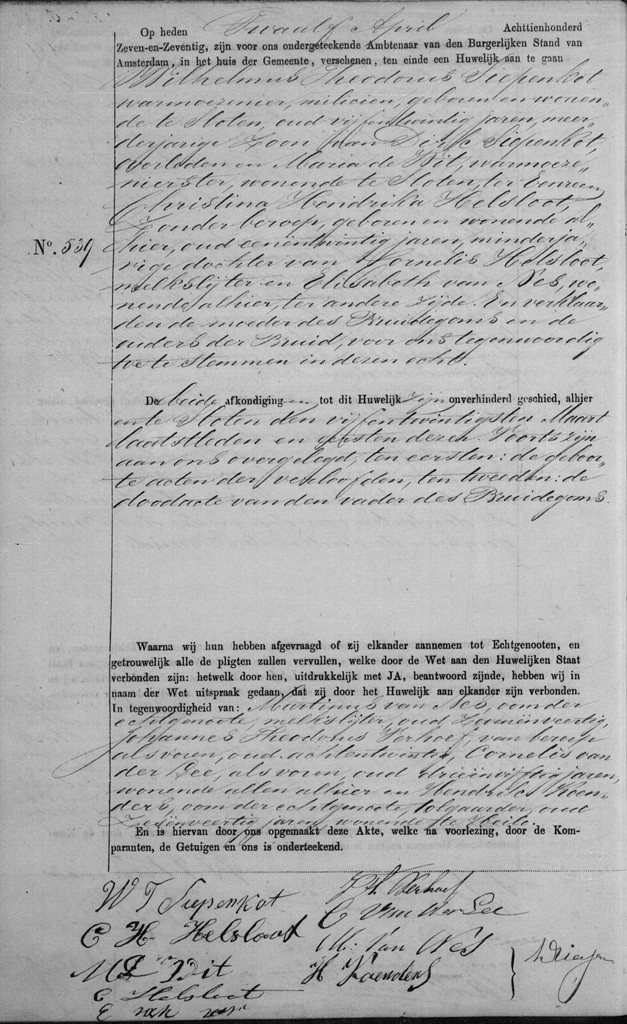 Op heden Twaalf April Achttienhonderd
Zeven-en-Zeventig, zijn voor ons ondergeteekende Ambtenaar van den Burgerlijken Stand van
Amsterdam, in het huis der Gemeente, verschenen, ten einde een Huwelijk aan te gaan
Wilhelmus Theodorus Siepenkot
warmoezenier, milicien, geboren en wonen-
de te Sloten, oud vijfentwintig jaren, meer-
derjarige Zoon van Dirk Siepenkot,
overleden en Maria de Wit, warmoeze-
nierster, wonende te Sloten, ter Eenre en
Christina Hendrika Helsloot,
Zonder beroep, geboren en wonende al-
Nº. 539 hier, oud eenentwintig jaren, minderja-
rige dochter van Cornelis Helsloot,
melkslijter en Elisabeth van Nes, wo-
nende alhier, ter andere zijde. En verklaar-
den de moeder des Bruidegoms en de
ouders der Bruid, voor ons tegenwoordig
toe te stemmen in deze echt.
De beide afkondigingen tot dit Huwelijk zijn onverhinderd geschied, alhier
en te Sloten den vijfentwintigsten Maart
laatstleden en eersten dezer. Voorts zijn
aan ons overgelegd, ten eersten: de geboor-
te acten der verloofden, ten tweeden: de
doodacte van den vader des Bruidegoms.
Waarna wij hun hebben afgevraagd of zij elkander aannemen tot Echtgenooten, en
getrouwelijk alle de pligten zullen vervullen, welke door de Wet aan den Huwelijken Staat
verbonden zijn: hetwelk door hen, uitdrukkelijk met JA, beantwoord zijnde, hebben wij in
naam der Wet uitspraak gedaan, dat zij door het Huwelijk aan elkander zijn verbonden.
In tegenwoordigheid van: Martinus van Nes, oom der
echtgenoote, melkslijter, oud zevenenveertig,
Johannes Theodorus Verhoef, van beroep
als voren, oud achtentwintig, Cornelis van
der Lee, als voren, oud drieënvijftig jaren,
wonende allen alhier en Hendricus Koen-
ders, oom der echtgenoote, tolgaarder, oud
jaren, wonende te Heilo.
En is hiervan door ons opgemaakt deze Akte, welke na voorlezing, door de Kom-
paranten, de Getuigen en ons is onderteekend.
W T Siepenkot
J Th Verhoef
C H Helsloot
C Van der Lee
M D Wit
M. Van Nes
C Helsloot
H Koenders
E van nes